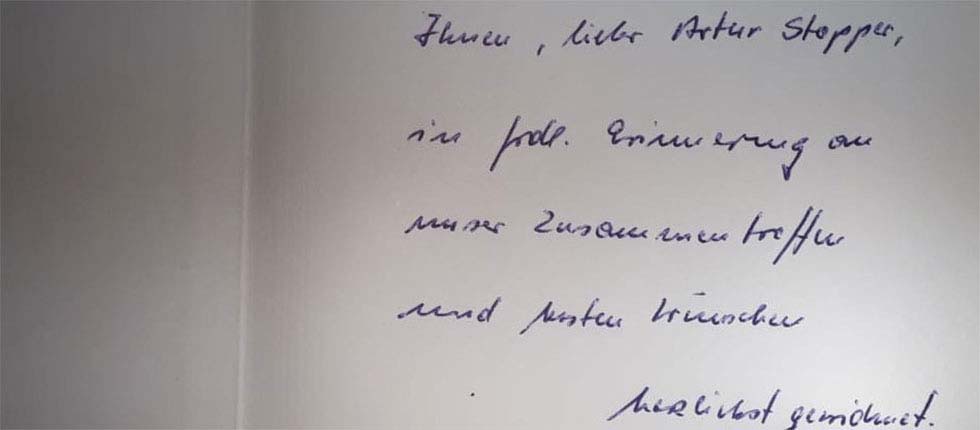 Ihnen, lieber Artur Stopper,
in frdl. Erinnerung an
unser Zusammentreffen
und besten Wünschen
herzlichst gewidmet.